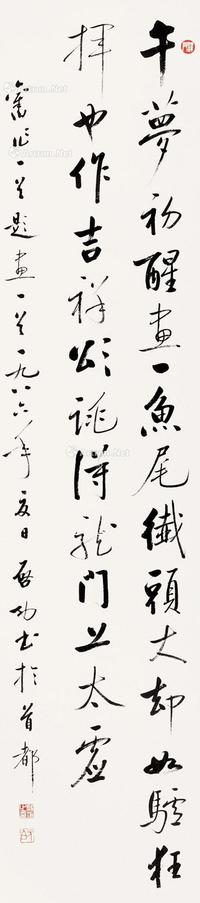 午夢初醒畫一魚尾纖頭大却如驢狂
揮也作吉祥頌跳得龍門上太虛
舊作一首題畫一首一九八六年夏日啟功書於首都